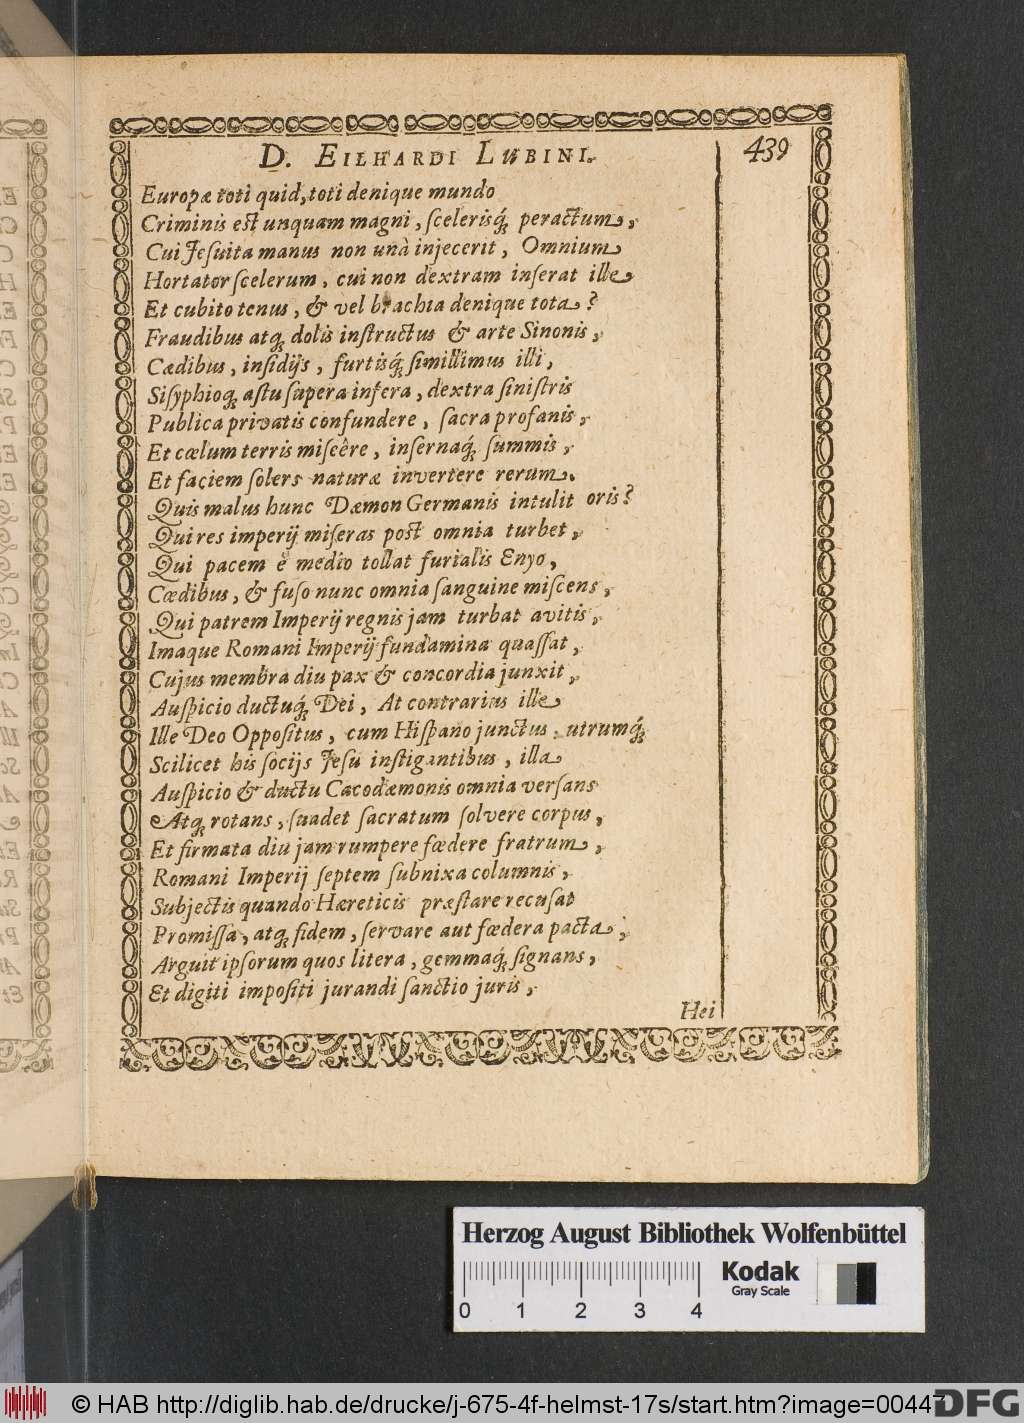 D. EILHARDI LUBINI.
439
Europæ toti quid, toti denique mundo
Criminis est unquam magni, scelerisq́; peractum,
Cui Jesuita manus non unà injecerit, Omnium
Hortator scelerum, cui non dextram inserat ille
Et cubito tenus, & vel brachia denique tota?
Fraudibus atq; dolis instructus & arte Sinonis,
Cædibus, insidijs, furtisq́; simillimus illi,
Sisyphioq; astu supera infera, dextra sinistris
Publica privatis confundere, sacra profanis,
Et cælum terris miscêre, infernaq́; summis,
Et faciem solers naturæ invertere rerum.
Quis malus hunc Dæmon Germanis intulit oris?
Qui res imperij miseras post omnia turbet,
Qui pacem è medio tollat furialis Enyo,
Cædibus, & fuso nunc omnia sanguine miscens,
Qui patrem Imperij regnis jam turbat avitis,
Imaque Romani Imperij fundamina quassat,
Cujus membra diu pax & concordia junxit,
Auspicio ductuq́; Dei, At contrarius ille
Ille Deo Oppositus, cum Hispano junctus, utrumq́;
Scilicet his socijs Jesu instigantibus, illa
Auspicio & ductu Cacodæmonis omnia versans
Atq; rotans, suadet sacratum solvere corpus,
Et firmata diu jam rumpere fœdere fratrum,
Romani Imperij septem subnixa columnis,
Subjectis quando Hæreticis præstare recusat
Promissa, atq; fidem, servare aut fœdera pacta,
Arguit ipsorum quos litera, gemmaq́; signans,
Et digiti impositi jurandi sanctio juris,
Hei
Herzog August Bibliothek Wolfenbüttel
0 1 2 3 4
Kodak
Gray Scale
© HAB http://diglib.hab.de/drucke/j-675-4f-helmst-17s/start.htm?image=00447
DFG